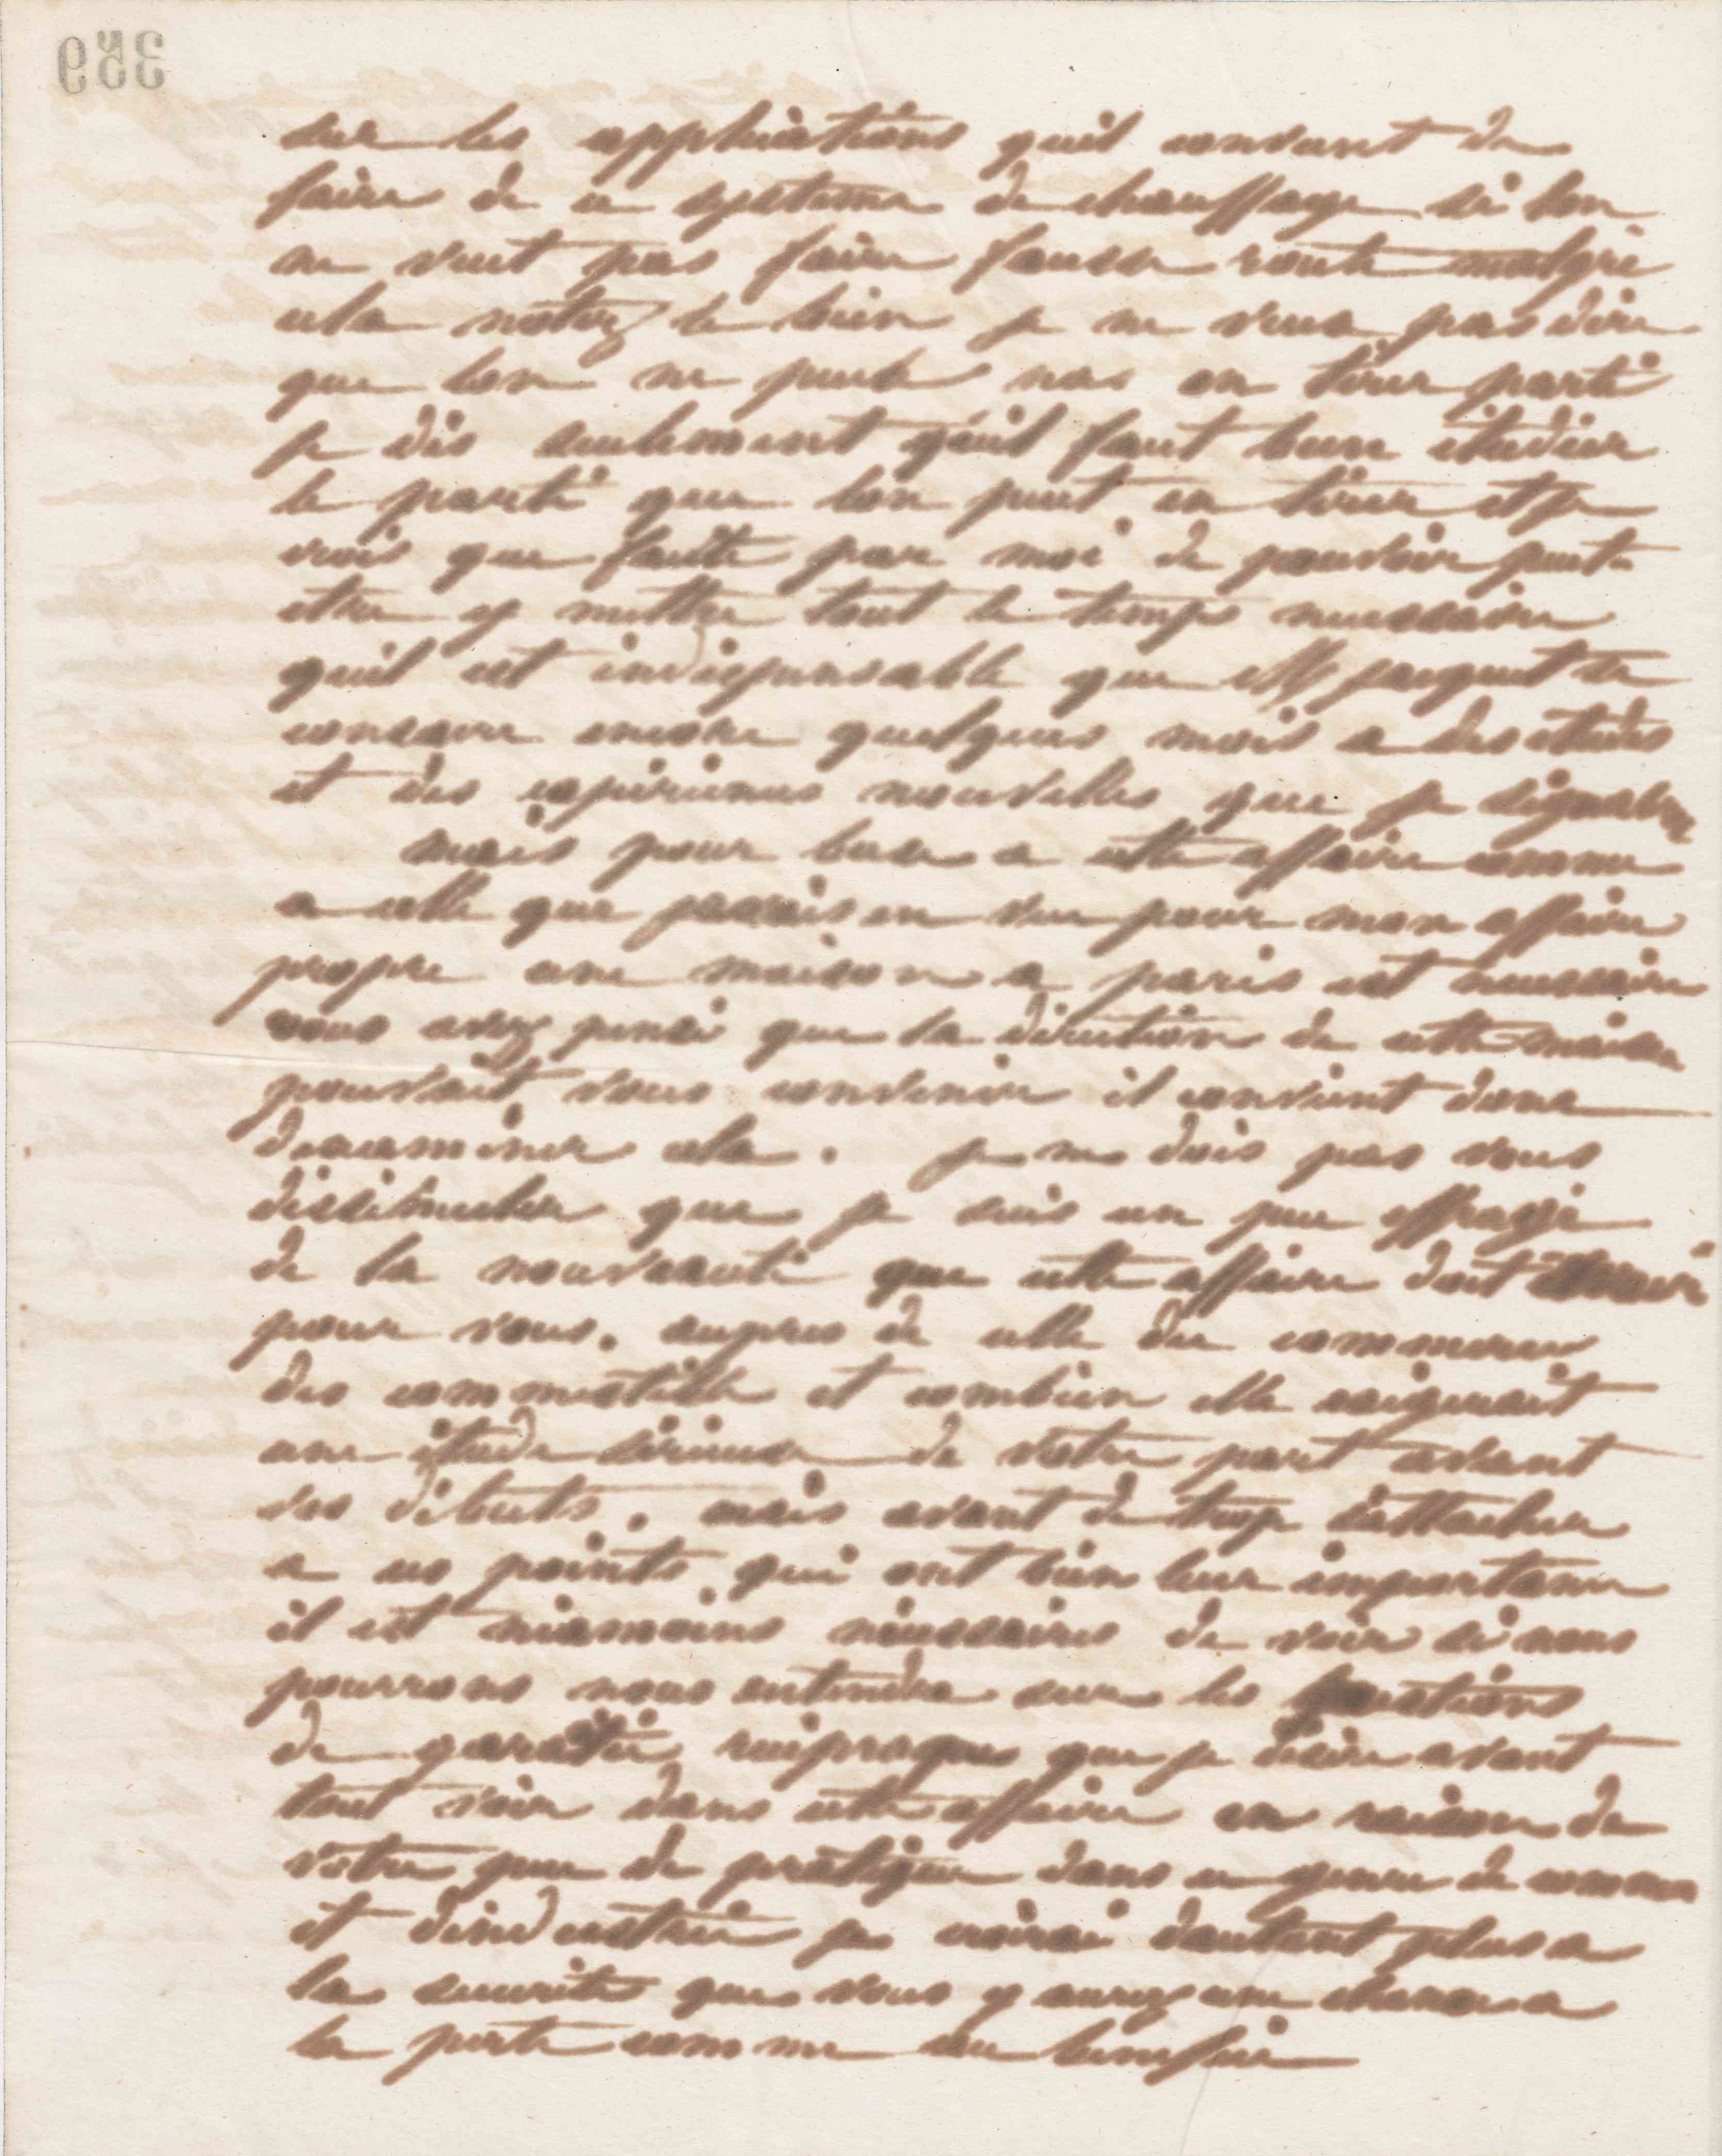 359
sur les applications quil convient de
faire de ce systeme de chauffage si lon
ne veut pas faire fausse route malgré
cela notez le bien je ne veux pas dire
que lon ne puisse pas en tirer parti
je dis seulement quil faut bien étudier
le parti que lon peut en tirer et je
vois que faute par moi de pouvoir peut
etre y mettre tout le temps necessaire
quil est indispensable que
consacre encore quelques mois a des etudes
et des expériences nouvelles que je signalerai
mais pour base a cette affaire comme
a celle que javais en vue pour mon affaire
propre une maison a paris est necessaire
vous avez pensé que la direction de cette maison
pouvait vous convenir il convient donc
dexaminer cela. je ne dois pas vous
dissimuler que je suis un peu effrayé
de la nouveauté que cette affaire doit avoir
pour vous. aupres de celle du commerce
des commestible et combien elle exigerait
une étude sérieuse de votre part avant
vos débuts. mais avant de trop sattacher
a ces points qui ont bien leur importance
il est néanmoins nécessaires de voir si nous
pourrons nous entendre sur les questions
de garantie reciproques que je désire avant
tout voir dans cette affaire en raison de
votre peu de pratique dans ce genre de
et dindustrie je croirai dautant plus a
la securite que vous y aurez une chance a
la perte comme au benefice